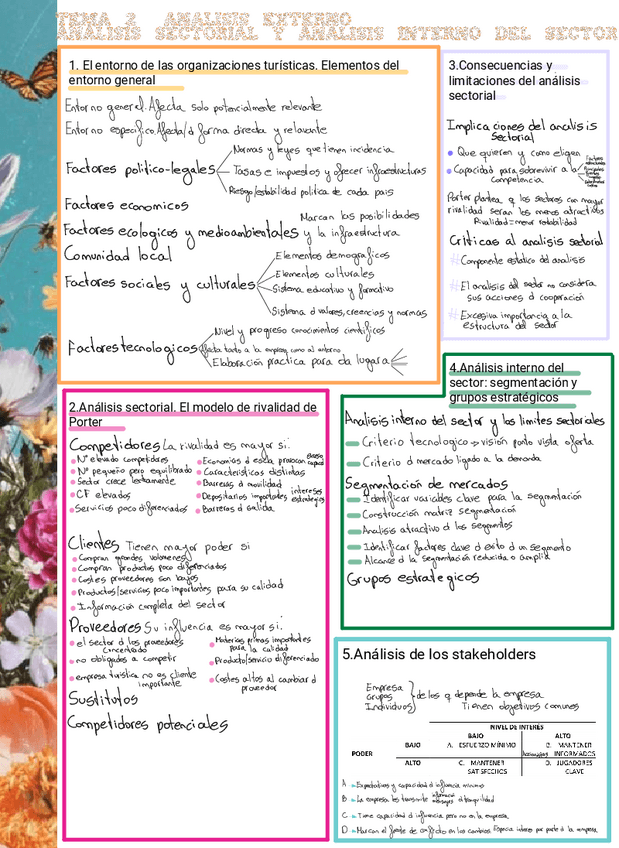 TEMA 2 ANALISIS EXTERNO
ANALISIS SECTORIAL Y ANALISIS INTERNO DEL SECTOR
1. El entorno de las organizaciones turísticas. Elementos del
entorno general
Entorno general. Afecta solo potencialmente relevante
Entorno especifico. Afecta/d forma directa y relevante
Factores politico-legales
Normas y leyes que tienen incidencia
Tasas e impuestos y ofrecer infraestructuras
Riesgo/estabilidad politica de cada pais
Factores economicos
Factores ecologicos y medioambientales
Marcan las posibilidades
y la infraestructura
Comunidad local
Factores sociales y culturales
Elementos demograficos
Elementos culturales
Sistema educativo y formativo
Sistema d valores, creencias y normas
Factores tecnologicos
Nivel y progreso conocimientos cientificos
Afecta tanto a la empresa como al entorno
Elaboración practica para da lugar a
2.Análisis sectorial. El modelo de rivalidad de
Porter
Competidores La rivalidad es mayor si:
Nº elevado competidores
Nº pequeño pero equilibrado
Sector crece lentamente
CF elevados
Servicios poco diferenciados
Economías d escala provocan
Caracteristicas distintas
Barreras d movilidad
Depositarios importantes intereses estrategicos
Barreras d salida
Clientes Tienen mayor poder si
Compran grandes volumenes
Compran productos poco diferenciados
Costes proveedores son bajos
Productos/servicios poco importantes para su calidad
Información completa del sector
Proveedores Su influencia es mayor si:
el sector d los proveedores
concentrado
no obligados a competir
empresa turística no es cliente
importante
Materias primas importantes
para la calidad
Producto/servicio diferenciado
Costes altos al cambiar d
proveedor
Sustitutos
Competidores potenciales
3.Consecuencias y
limitaciones del análisis
sectorial
Implicaciones del analisis
sectorial
Que quieren y como eligen
Capacidad para sobrevivir a la
competencia
Porter plantea q los sectores con mayor
rivalidad seran los menos atractivos
Rivalidad=menor rentabilidad
Criticas al analisis sectorial
# Componente estatico del analisis
# El analisis del sector no considera
sus acciones d cooperación
# Excesiva importancia a la
estructura del sector
4.Análisis interno del
sector: segmentación y
grupos estratégicos
Analisis interno del sector y los limites sectoriales
Criterio tecnologico → visión punto vista oferta
Criterio d mercado ligado a la demanda
Segmentación de mercados
Identificar variables clave para la segmentación
Construcción matriz segmentación
Analisis atractivo d los segmentos
Identificar factores clave d exito d un segmento
Alcance d la segmentación reducida o amplia
Grupos estrategicos
5.Análisis de los stakeholders
Empresa
Grupos
Individuos
de los q depende la empresa
Tienen objetivos comunes
NIVEL DE INTERÉS
BAJO ALTO
PODER
BAJO A. ESFUERZO MÍNIMO B. MANTENER INFORMADOS
ALTO C. MANTENER SATISFECHOS D. JUGADORES CLAVE
A → Expectativas y capacidad d influencia minimas
B → La empresa les transmite información mensajes d tranquilidad
C → Tiene capacidad d influencia pero no en la empresa
D → Marcan el frente de conflicto en los cambios. Especial interes por parte d la empresa